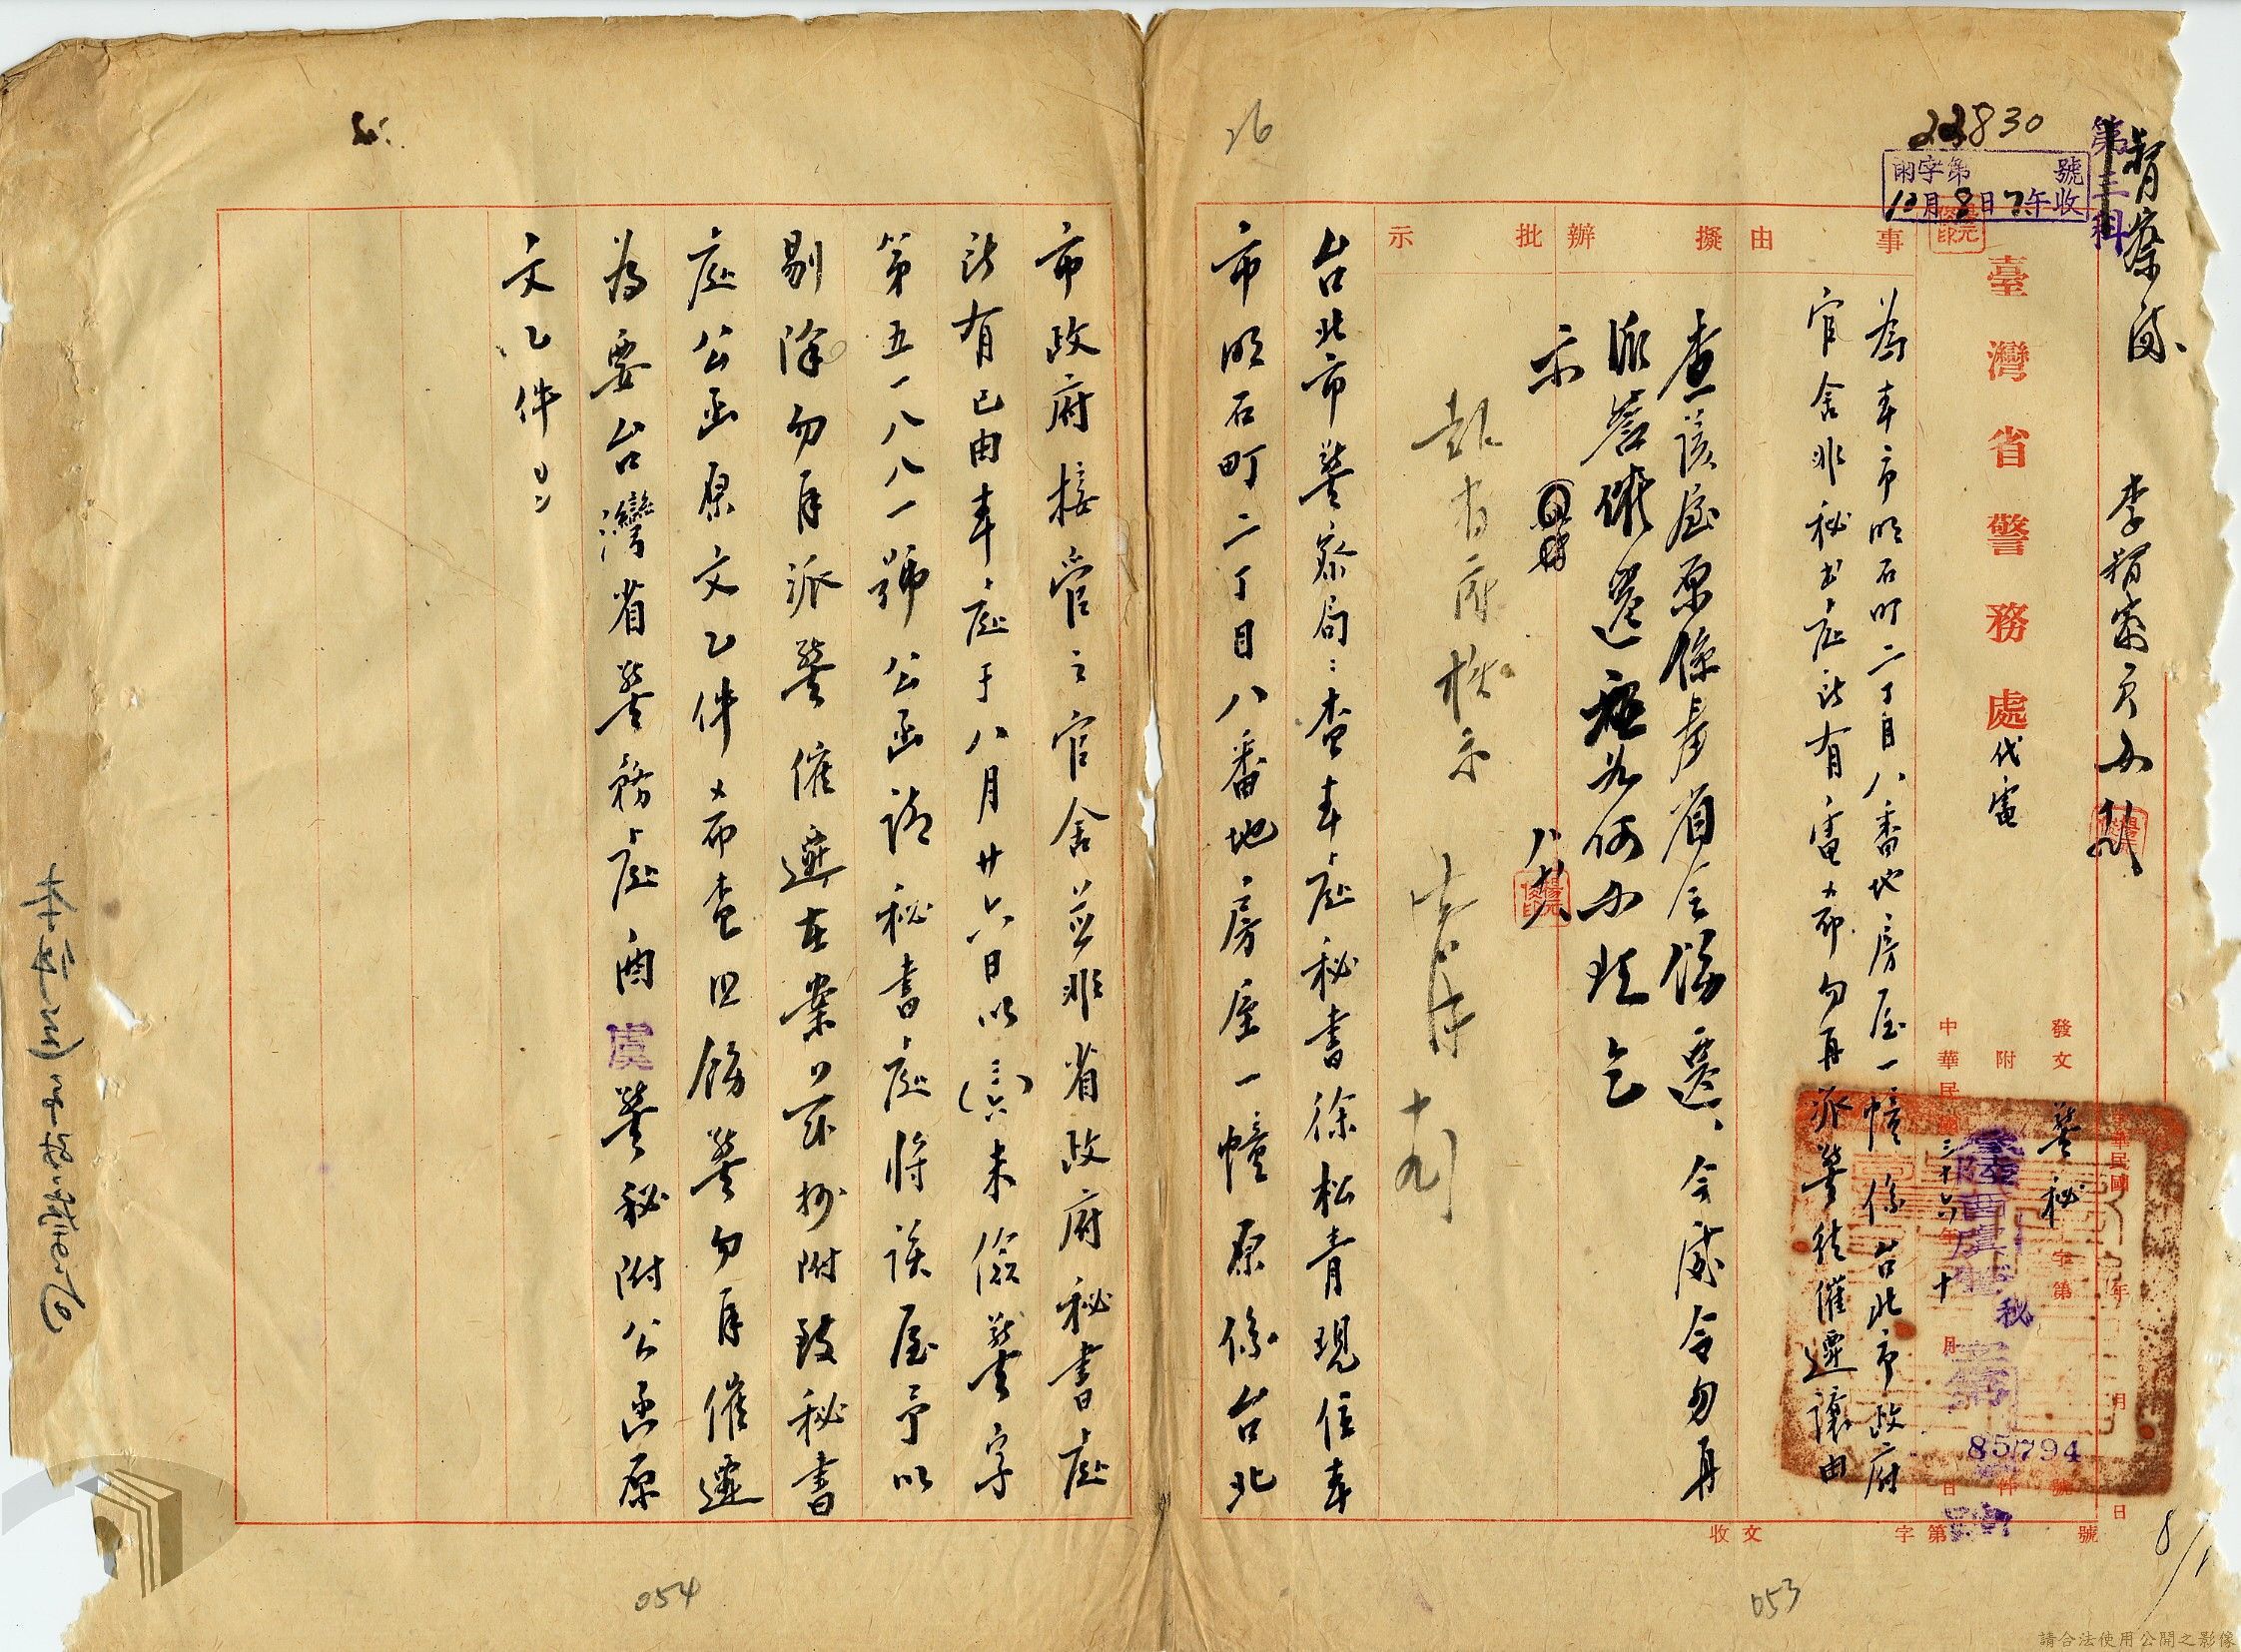 23830
第三科
雨字第 號
10月8日 午收
督察室
李督察員
臺灣省警務處代電
發文 警秘 字第 85794 號
附 件
中華民國三十六年十 月 日
中華民國 年 月 日
收文 字第 號
事由
為本市明石町二丁目八番地房屋一幢係台北市政府
官舍非秘書處所有電希勿再派警往催遷讓由
擬辦
查該屋原係奉省令飭遷、今處令勿再
派警催遷應如何小頭乞
示
八
批示
報省府核示
十九
台北市警察局:查本處秘書徐松青現住本
市明石町二丁目八番地房屋一幢原係台北
市政府接管之官舍並非省政府秘書處
所有已由本處于八月廿六日以(三六)未儉警字
第五一八八一號公函請秘書處將該屋予以
剔除勿再派警催遷在案茲抄附致秘書
處公函原文乙件希查照飭警勿再催遷
為要台灣省警務處酉虞警秘附公函原
文乙件
26
053
054
8/1
請合法使用公開之影像